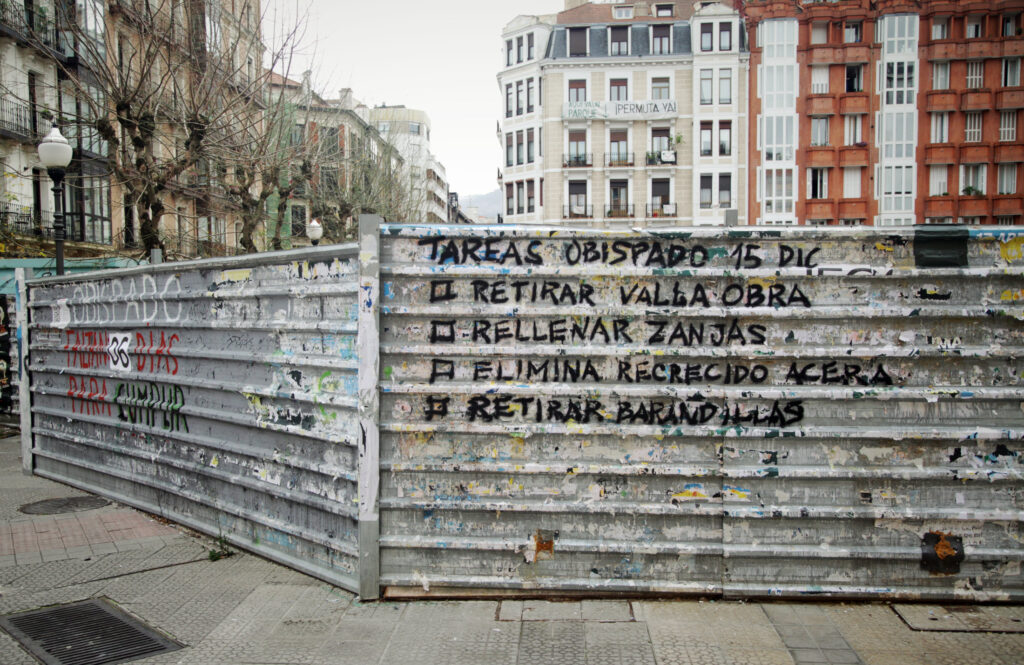 AQUI VA UN
PARQUE
¡PERMUTA YA!
OBISPADO
FALTAN 36 DÍAS
PARA CUMPLIR
TAREAS OBISPADO 15 DIC
RETIRAR VALLA OBRA
RELLENAR ZANJAS
ELIMINA RECRECIDO ACERA
RETIRAR BARANDILLAS